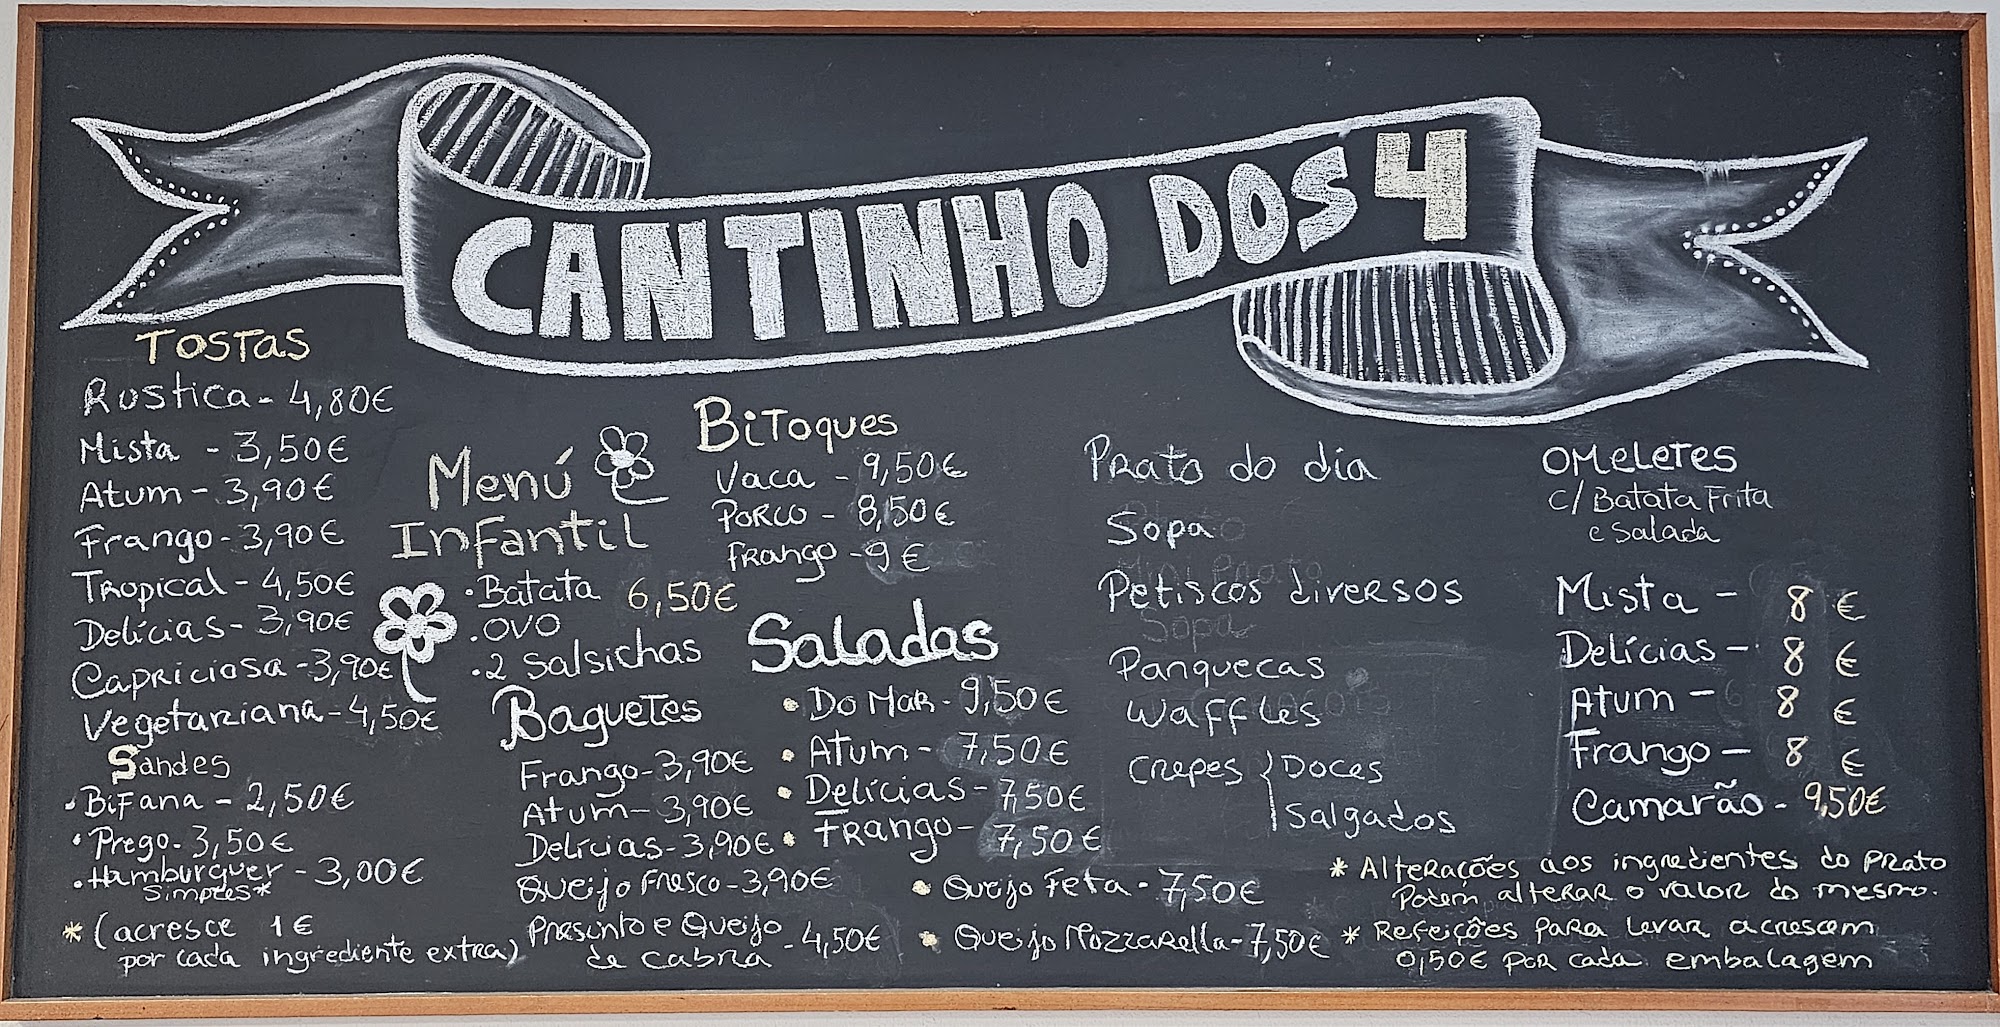 CANTINHO DOS 4
TOSTAS
Rustica - 4,80€
Mista - 3,50€
Atum - 3,90€
Frango - 3,90€
Tropical - 4,50€
Delícias - 3,90€
Capriciosa - 3,90€
Vegetariana - 4,50€
Sandes
• Bifana - 2,50€
• Prego - 3,50€
• Hamburguer - 3,00€
Simples*
* (acresce 1€
por cada ingrediente extra)
Menú
Infantil
• Batata 6,50€
• OVO
• 2 Salsichas
Baguetes
Frango - 3,90€
Atum - 3,90€
Delícias - 3,90€
Queijo Fresco - 3,90€
Presunto e Queijo
de cabra - 4,50€
BiToques
Vaca - 9,50€
Porco - 8,50€
Frango - 9€
Saladas
• Do Mar - 9,50€
• Atum - 7,50€
• Delícias - 7,50€
• Frango - 7,50€
• Queijo Feta - 7,50€
• Queijo Mozzarella - 7,50€
Prato do dia
Sopa
Mini Prato
Petiscos diversos
Sopa
Panquecas
Waffles
Crepes { Doces
Salgados
OMELETES
C/ Batata Frita
e Salada
Mista - 8€
Delícias - 8€
Atum - 8€
Frango - 8€
Camarão - 9,50€
* Alterações aos ingredientes do prato
Podem alterar o valor do mesmo.
* Refeições para levar acrescem
0,50€ por cada embalagem